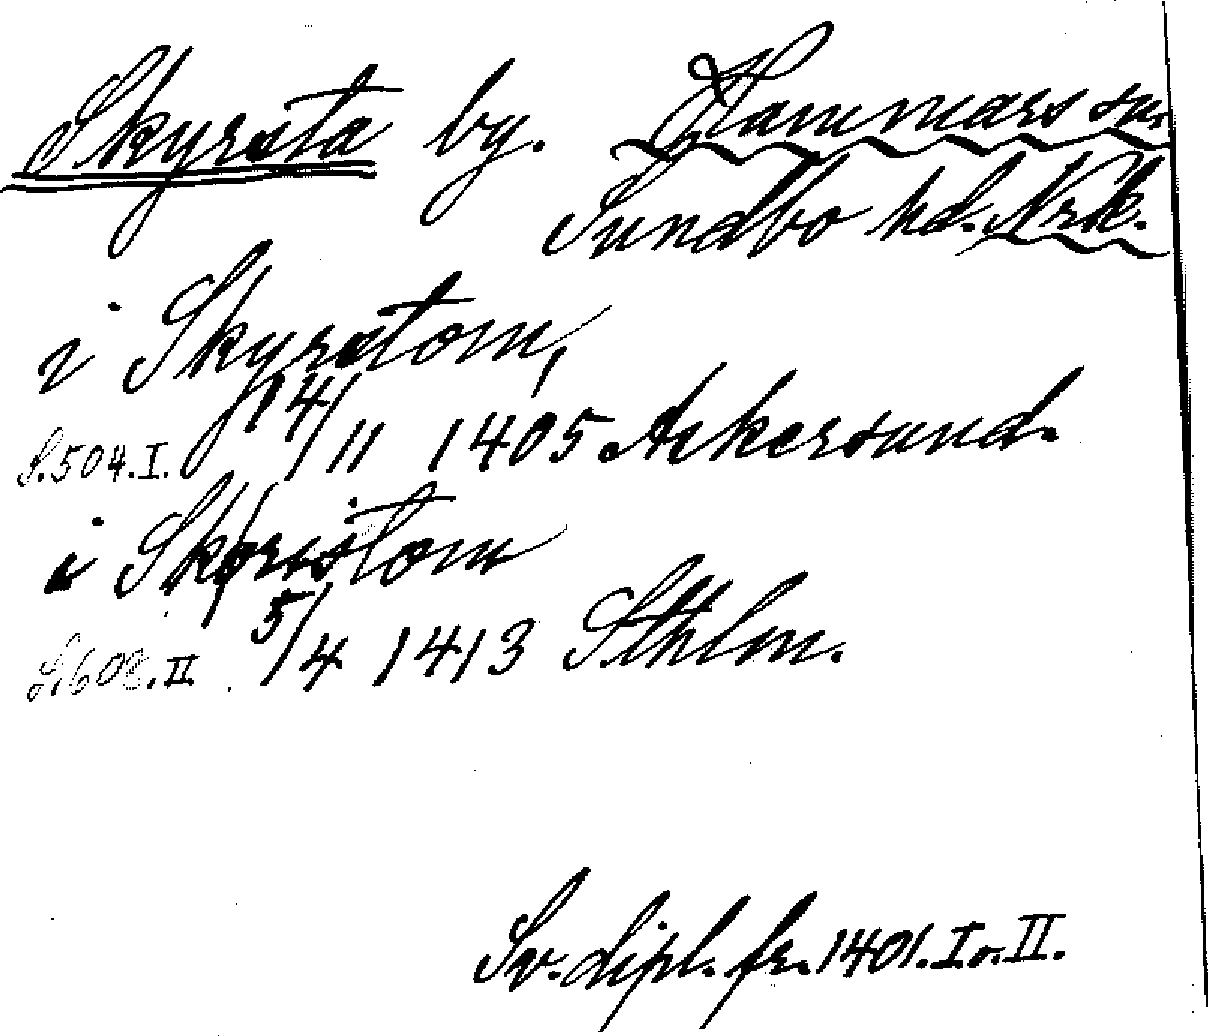 Skyrsta by. Hammars sn.
Sundbo hd. Nrk.
i Skyrstom,
S. 504. I. 14/11 1405 Askersund.
i Skøristom
S. 602. II. 5/4 1413 Sthlm.
Sv. dipl. fr. 1401. I o. II.